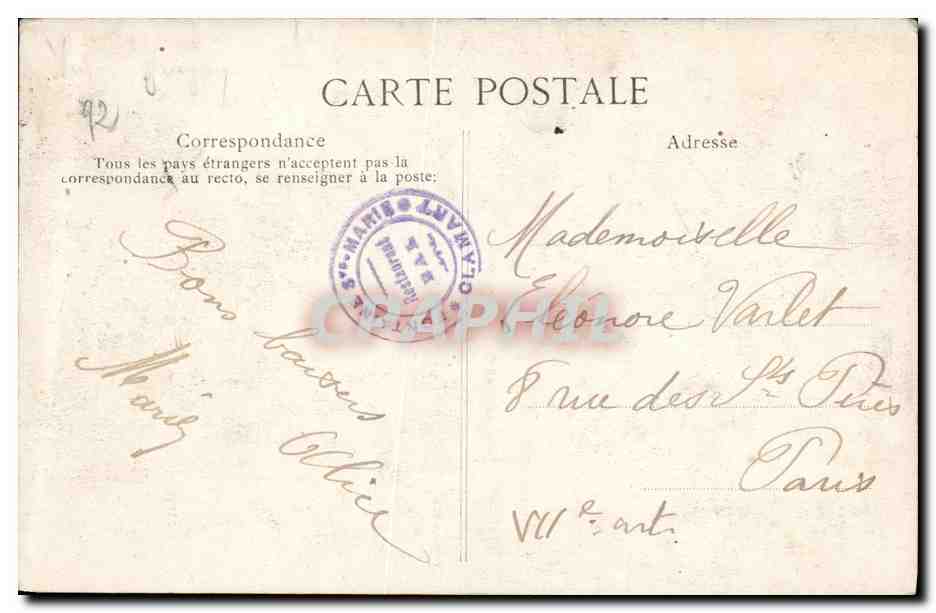 92
CARTE POSTALE
Correspondance
Tous les pays étrangers n'acceptent pas la
correspondance au recto, se renseigner à la poste.
Adresse
Bons baisers
Alice
CLAMART
Ste-MARIE
Restaurant
BAR
CPAPHIL
Mademoiselle
Eléonore Varlet
8 rue des Sts Pères
Paris
VIIe art